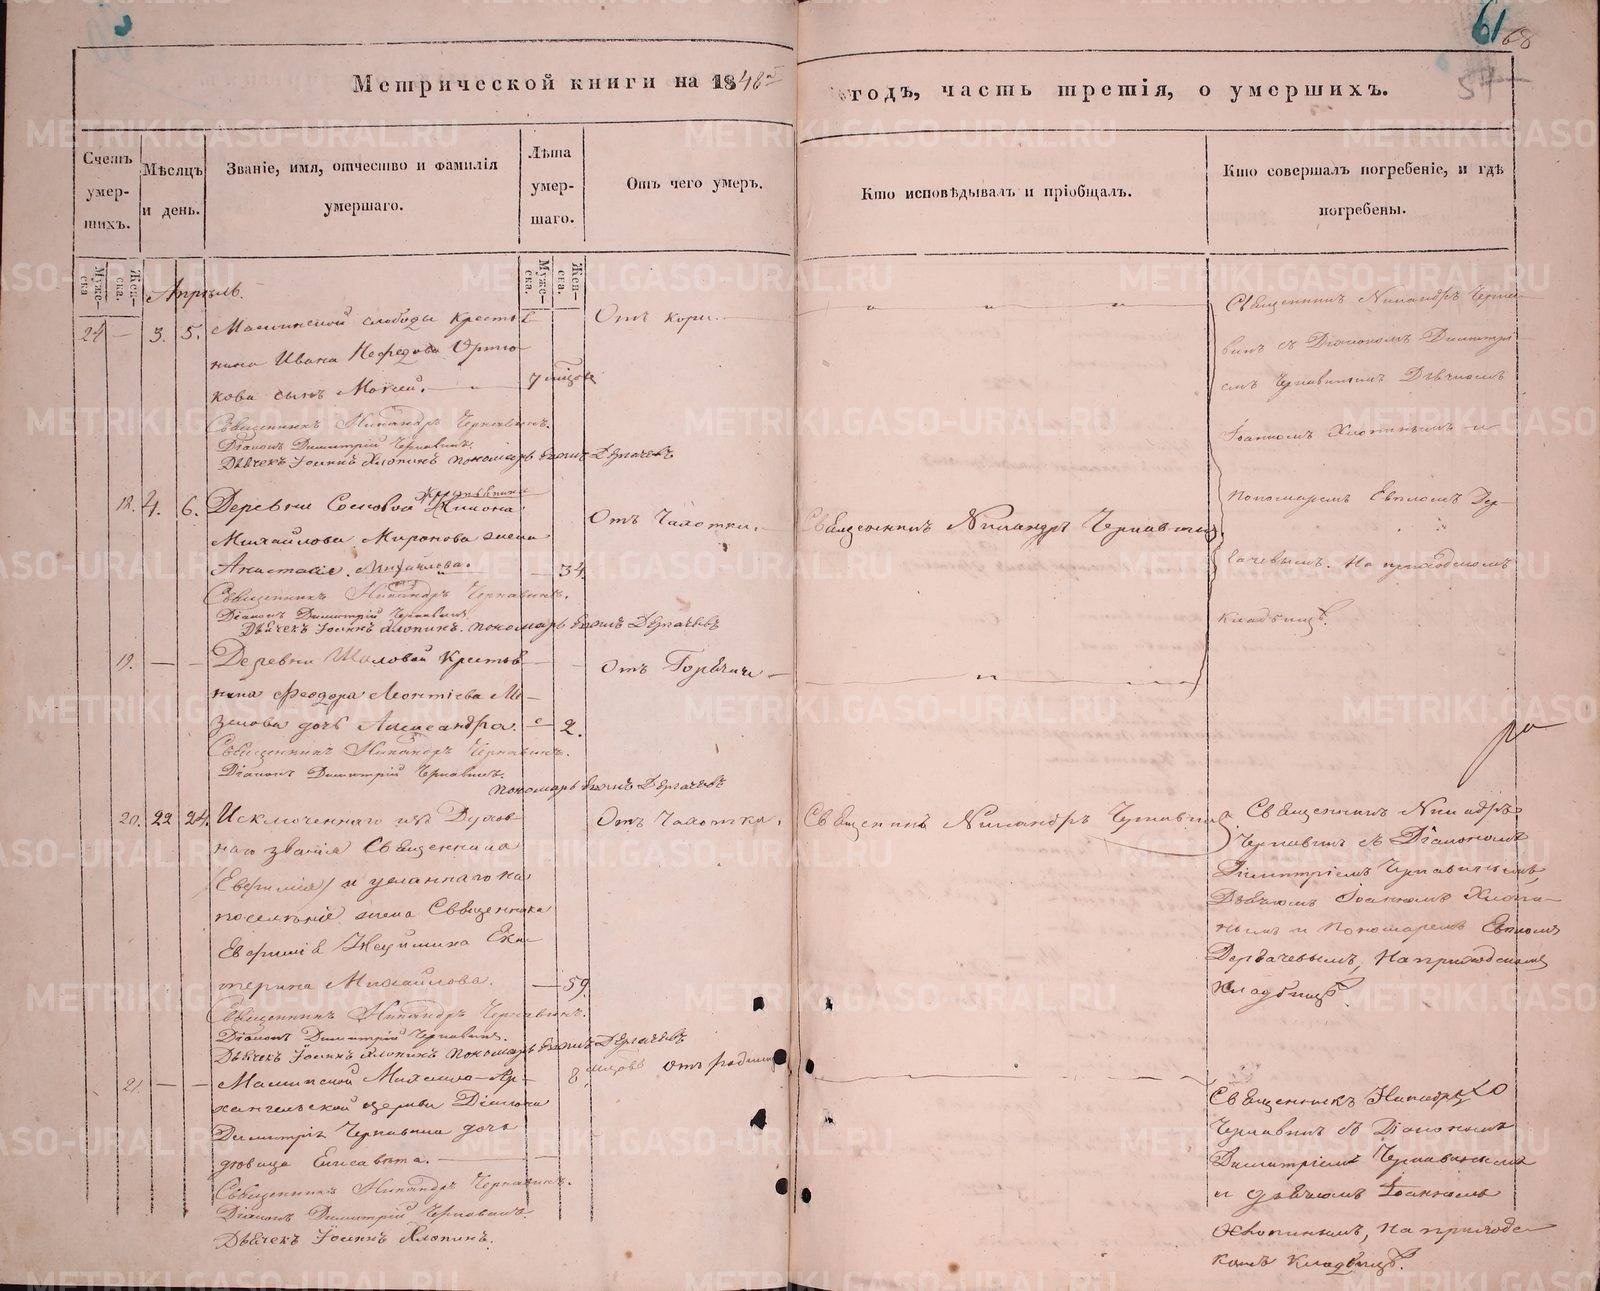 61
68
57
Метрической книги на 1848й годъ, часть третія, о умершихъ.
Счетъ умер-шихъ.
Мѣсяцъ и день.
Званіе, имя, отчество и фамилія умершаго.
Лѣта умер-шаго.
Отъ чего умеръ.
Кто исповѣдывалъ и пріобщалъ.
Кто совершалъ погребеніе, и гдѣ погребены.
Муже-ска
Жен-ска.
Муже-ска.
Жен-ска.
Апрѣль.
24 — 3. 5.
Маминской слободы крестья-
нина Ивана Нефедова
кова сынъ Мокей.
7 мѣсяцов
Отъ кори.
Священникъ Никандръ Чернавинъ.
Діаконъ Димитрій Чернавинъ.
Дьячекъ Іоаннъ Хлопинъ Пономарь Евплъ Дергачевъ
18. 4. 6.
Деревни Сосновой крестьянина
Михайлова Миронова жена
Анастасія Михайлова.
34
Отъ Чахотки.
Священникъ Никандръ Чернавинъ.
Священникъ Никандръ Чернавинъ.
Діаконъ Димитрій Чернавинъ
Дьячекъ Іоаннъ Хлопинъ. Пономарь Евплъ Дергачевъ
19. — —
Деревни Шиловой Крестья-
нина Феодора Леонтіева
дочь Александра.
2.
Отъ Горячки
Священникъ Никандръ Чернавинъ.
Діаконъ Димитрій Чернавинъ.
Пономарь Евплъ Дергачевъ
20. 22 24.
Исключеннаго изъ Духов-
наго званія Священника
(Евфимія) и усланнаго на
поселѣніе жена Священника
Евфимія Ека-
терина Михайлова.
59.
Отъ Чахотки.
Священникъ Никандръ Чернавинъ.
Священникъ Никандръ Чернавинъ.
Діаконъ Димитрій Чернавинъ.
Дьячекъ Іоаннъ Хлопинъ Пономарь Евплъ Дергачевъ
21. — —
Маминской Михаило-Ар-
хангельской церкви Діакона
Димитрія Чернавина дочь
дѣвица Елисавета.
8 мѣсяцовъ
Отъ родимца
Священникъ Никандръ Чернавинъ.
Діаконъ Димитрій Чернавинъ.
Дьячекъ Іоаннъ Хлопинъ.
Священникъ Никандръ Черна-
винъ съ Діакономъ Димитрі-
емъ Чернавинымъ Дьячкомъ
Іоанномъ Хлопинымъ и
Пономаремъ Евпломъ Дер-
гачевымъ. На приходскомъ
кладбищѣ.
Священникъ Никандръ
Чернавинъ съ Діакономъ
Димитріемъ Чернавинымъ,
Дьячкомъ Іоанномъ Хлопи-
нымъ и Пономаремъ Евпломъ
Дергачевымъ, На приходскомъ
кладбищѣ.
Священникъ Никандръ
Чернавинъ съ Діакономъ
Димитріемъ Чернавинымъ
и дьячкомъ Іоанномъ
Хлопинымъ, на приходс-
комъ кладбищѣ.
METRIKI.GASO-URAL.RU